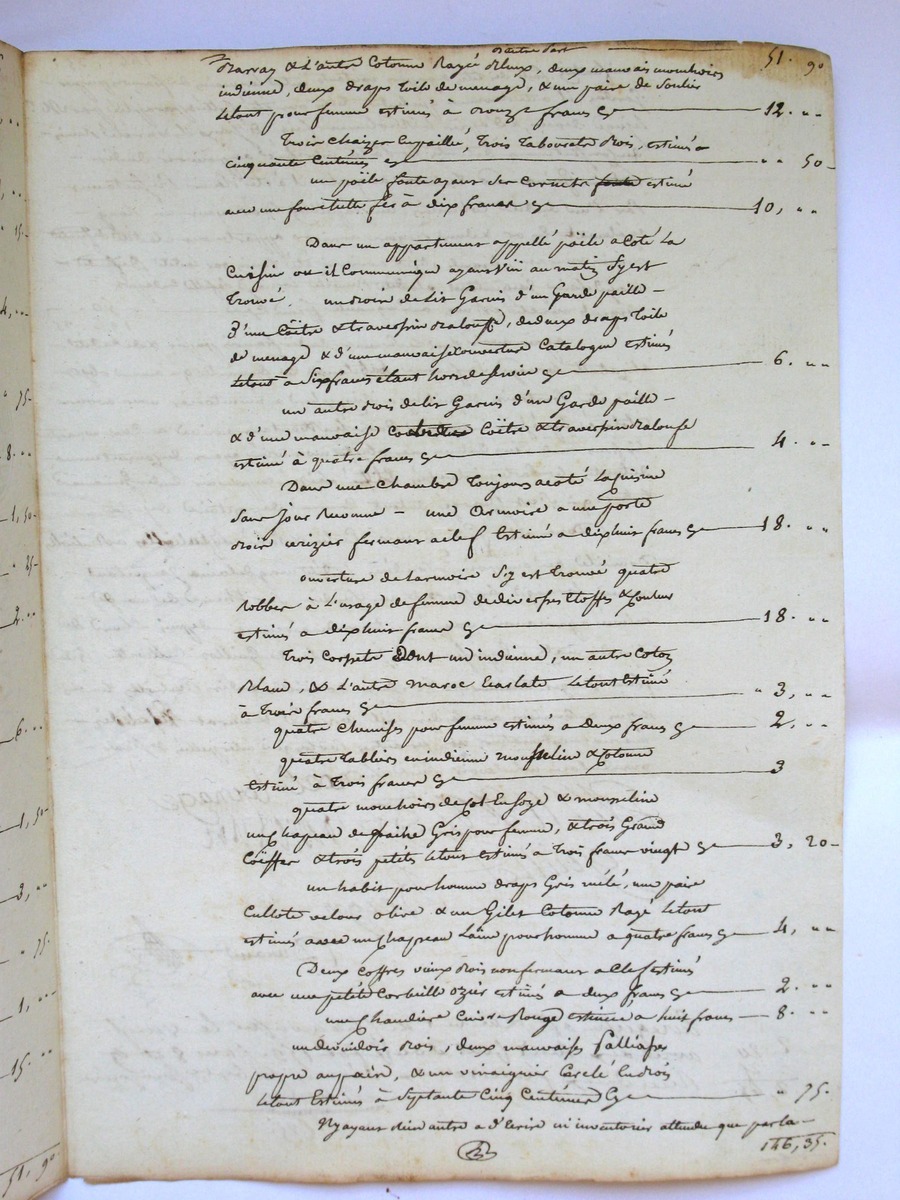 D'autre Part 51. 90
& L'autre Cotonne Rayé Bleux, deux mauvais mouchoirs
indienne, deux draps toile de menage, & une paire de Soulier
letout pour femme estimés à douze francs 12. "
Trois chaizes Empaillé, Trois Tabourets Bois, estimés
Cinquante Centimes " " 50
un pöile fonte ayant ses Cornets fonte estimé
avec une fourchette fer à dix francs 10, "
Dans un appartement appellé pöile a Coté La
Cuisine ou il Communique ayant vüe au matin S'y est
Trouvé. un bois de Lit Garnis d'un Garde paille
d'une Cöitre & traversin Balouffe, de deux draps toile
de menage & d'une mauvaise Couverture Catalogne estimés
letout à Six francs étant hors de Service 6. "
un autre bois de lit Garnis d'un Garde paille
& d'une mauvaise Cöitre & traversin Balouffe
estimé à quatre francs 4. "
Dans une Chambre Toujours acoté La Cuisine
Sans Jour Reconnue – une Ormoire a une porte
Bois Cerizier fermant a clef Estimé a dix huit francs 18. "
ouverture de Larmoire S'y est Trouvé quatre
Robbes à L'usage de femme de diverses Etoffes & Couleur
estimés a dix huit francs 18. "
Trois Corsets Dont un indienne, un autre Coton
Blanc, & L'autre Maroc Ecarlate letout Estimé
à Trois francs " 3, "
quatre Chemises pour femme estimés a deux francs 2. "
quatre Tabliers en indienne mousseline & Cotonne
Estimé à Trois francs 3
quatre mouchoirs de Col En Soye & mousseline
un Chapeau de paille Gris pour femme, & trois Grand
Cöiffes & trois petits letout estimés a Trois francs vingt 3, 20
un habit pour homme draps Gris mélé, une paire
Cullote velour olive & un Gilet Cotonne Rayé letout
estimés avec un Chapeau Laine pour homme a quatre francs 4, "
Deux coffres vieux Bois non fermant a Clef estimés
avec une petite Corbeille ozier estimés a deux francs 2. "
une Chaudière Cuivre Rouge estimée a huit francs 8. "
un devidoir Bois, deux mauvaises Palliasses
propre au paire, & un vinaigrier Cerclé en Bois
letout Estimés à Septante Cinq Centimes " 75.
N'y ayant Rien autre a d'Ecrire ni inventorier attendu que par la
146, 35.